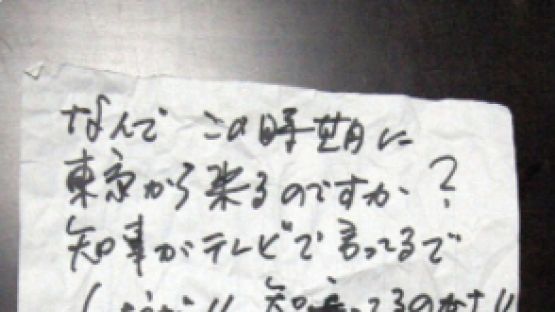 なんで この時期に
東京から来るのですか?
知事がテレビで言ってるで